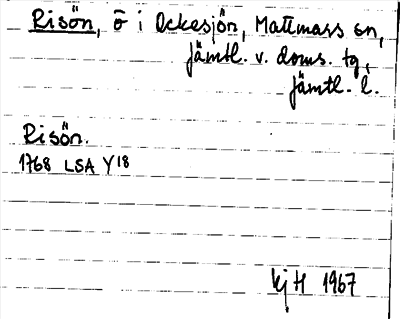 Risön, ö i Ockesjön, Mattmars sn,
Jämtl. v. doms. tg,
Jämtl. l.
Risön.
1768 LSA Y18
kj H 1967